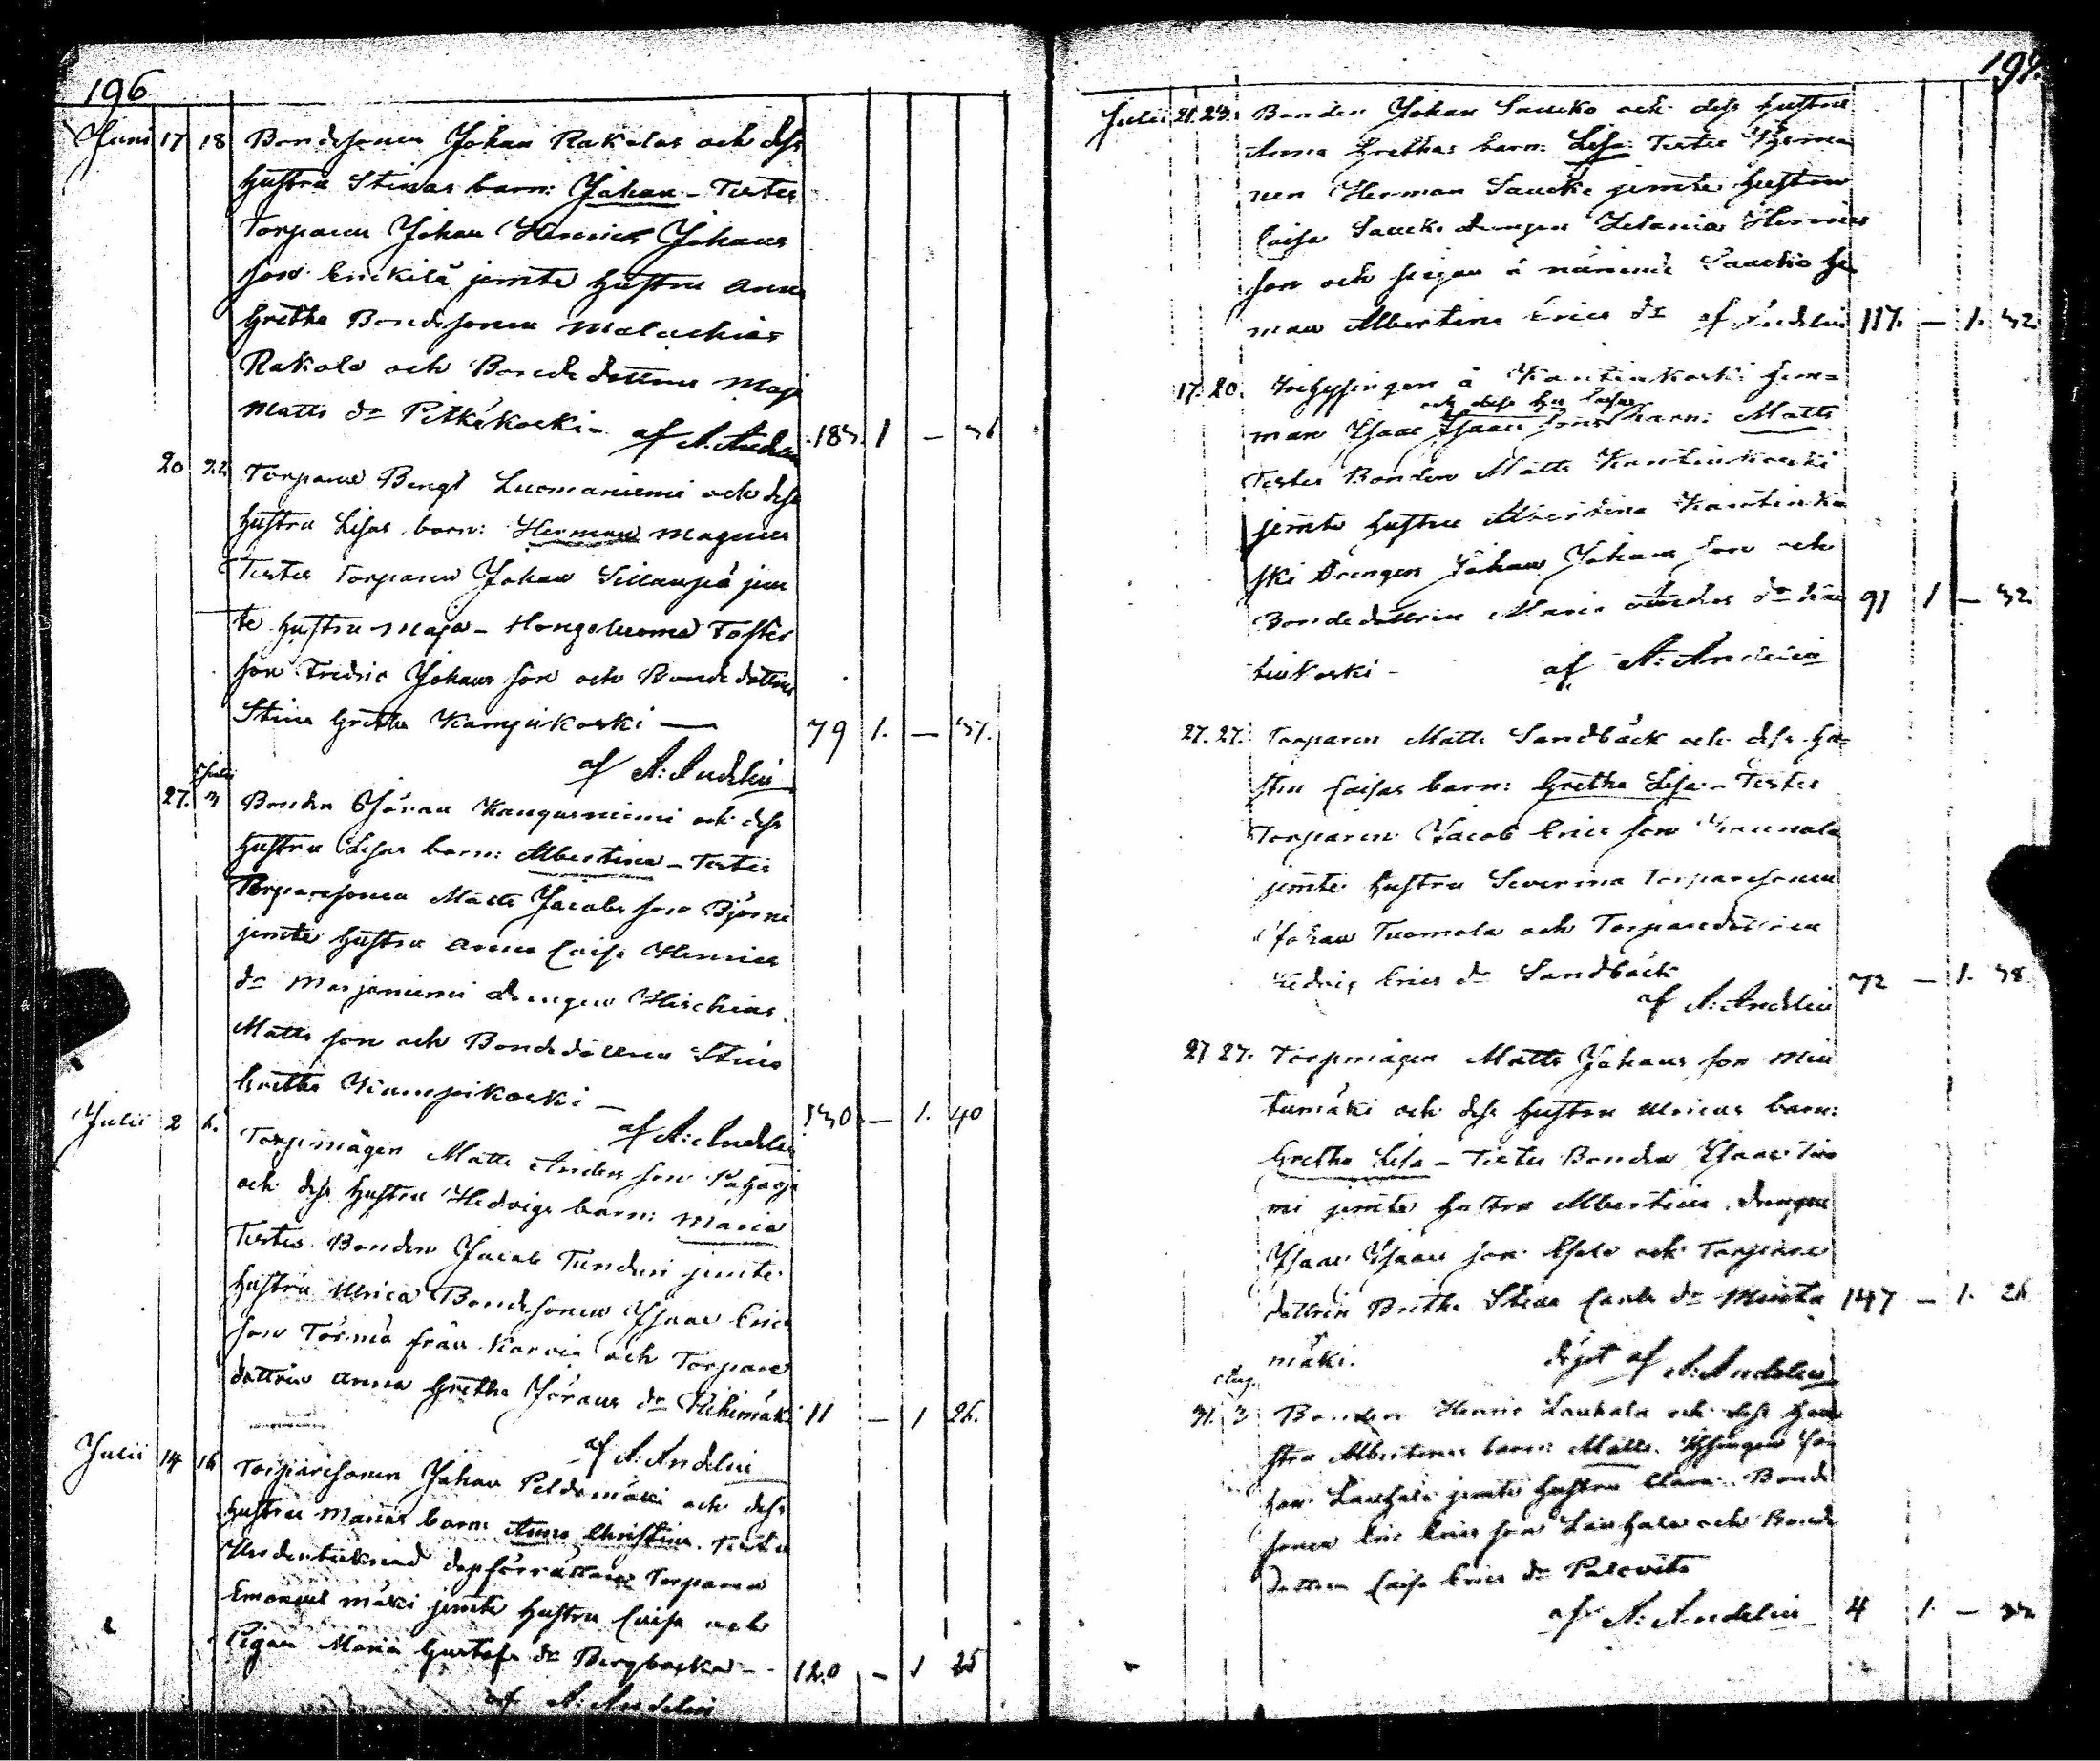 196
Juni 17 18 Bondesonen Johan Rakolas och dess
hustru Stinas barn: Johan - Testes
Torparen Johan Henrick Johans
son Erickilä jemte hustru Anna
Gretha Bondesonen Malachias
Rakola och Bondedottren Maja
Matts dr Pitkäkoski - af A. Andelin 183. 1 - 31
20 22 Torparen Bengt Luomaniemi och dess
hustru Lisas barn: Herman Magnus
Testes Torparen Johan Sillanpä jem
te hustru Maja - Hongoluoma Foster
son Fredric Johans son och Bonde dottren
Stina Gretha Kampikoski — 79 1. - 37.
af A: Andelin
Julii
27. 3 Bonden Göran Kangasniemi och dess
hustru Lisas barn: Albertina - Testes
Torparesonen Matts Jacobs son Björni
jemte hustru Anna Caisa Henrics
dr Marjaniemi Drengen Hischias
Matts son och Bondedottren Stina
Gretha Kampikoski - 130 - 1. 40
af A: Andelin
Julii 2 6. Torpmågen Matts Anders son
och dess hustru Hedvigs barn: Maria
Testes Bonden Jacob Tunduri jemte
hustru Ulrica Bondesonen Isaac Erics
son Törmä från Karvia och Torpare
dottren Anna Gretha Görans dr Riihimäki 11 - 1 26.
af A: Andelin
Julii 14 16 Torparesonen Johan Peldomäki och dess
hustru Marias barn: Anna Christina. Testes
Undertecknad dopförrättare Torparen
Emanuel Mäki jemte hustru Caisa och
Pigan Maria Gustafs dr Bergbacka - 120 - 1 25
af A: Andelin
197.
Julii 21. 23. Bonden Johan Saucko och dess hustru
Anna Grethas barn: Lisa. Testes
nen Herman Saucko jemte hustru
Caisa Saucko Drengen Zelania Henrics
son och pigan å nämnde Saucko he
man Albertina Erics dr af Andelin 117. - 1. 32
17. 20. Inhysingen å Kantinkoski hem=
och dess hu Caisas
man Isaac Isaacs sons barn: Matts
Testes Bonden Matts Kantinkoski
jemte hustru Albertina Kantinko
ski Drengen Johan Johans son och
Bondedottren Maria Anders dr Kan 91 1 - 32
tinkoski - af A: Andelin
27. 27. Torparen Matts Sandbäck och dess hu=
stru Caisas barn: Gretha Lisa - Testes
Torparen Jacob Erics son Kaunola
jemte hustru Severina Torparesonen
Johan Tuomola och Torparedottren
Hedvig Erics dr Sandbäck 72 - 1. 38
af A: Andelin
27 27. Torpmågen Matts Johans son Min
tumäki och dess hustru Ulricas barn:
Gretha Lisa - Testes Bonden Isaac
mi jemte hustru Albertina Drengen
Isaac Isaacs son och Torpare
dottren Britha Stina Carls dr Minta 147 - 1. 26
mäki. döpt af A: Andelin
Aug.
31. 3 Bonden Henric Lauhala och dess hu
stru Albertinas barn: Matts. Inhysingen Jo
han Lauhala jemte hustru Clara. Bonde
sonen Eric Erics son Lauhala och Bonde
dottren Caisa Erics dr Palovita
af A: Andelin 4 1. - 32